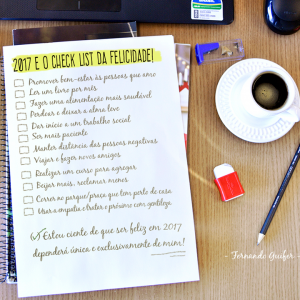 2017 E O CHECK LIST DA FELICIDADE!
Promover bem-estar às pessoas que amo
Ler um livro por mês
Fazer uma alimentação mais saudável
Perdoar e deixar a alma leve
Dar início a um trabalho social
Ser mais paciente
Manter distância das pessoas negativas
Viajar e fazer novos amigos
Realizar um curso para agregar
Beijar mais, reclamar menos
Correr no parque/praça que tem perto de casa
Usar a empatia e tratar o próximo com gentileza
(✓) Estou ciente de que ser feliz em 2017
dependerá única e exclusivamente de mim!
- Fernando Guifer -